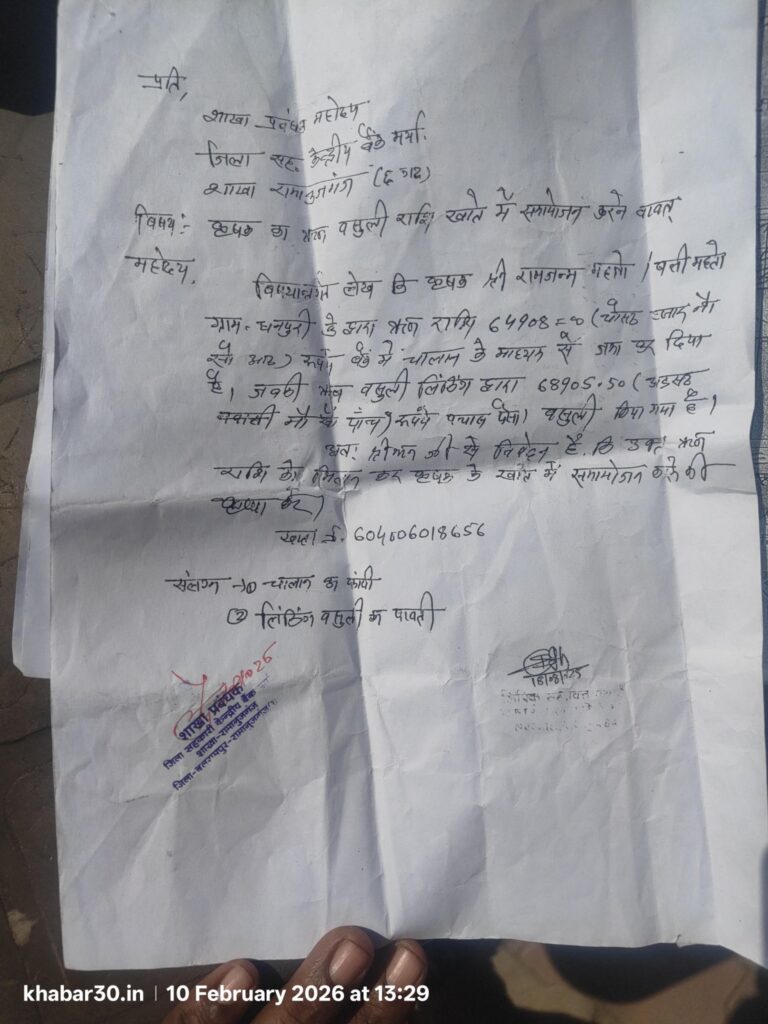 प्रति,
शाखा प्रबंधक महोदय
जिला सह. केन्द्रीय बैंक मर्या.
शाखा रामानुजगंज (छ ग)
विषय:- कृषक का ऋण वसुली राशि खाते में समायोजन करने बाबत्
महोदय,
विषयान्तर्गत लेख कि कृषक श्री रामजन्म महतो / पत्ती महतो
ग्राम- धनपुरी के द्वारा ऋण राशि 64908=00 (चौसठ हजार नौ
सौ आठ) रूपये बैंक में चालान के माध्यम से जमा कर दिया
है, जबकी ऋण वसुली लिंकिंग द्वारा 68905.50 (अडसठ
नौ सौ पाँच) रूपये पचास पैसा वसुली किया गया है।
अतः श्रीमान जी से निवेदन है. कि उक्त ऋण
राशि को मिलान कर कृषक के खाते में समायोजन करने की
कृपा करें।
खाता नं. 604006018656
संलग्न → ① चालान का कापी
② लिंकिंग वसुली का पावती
शाखा प्रबंधक
जिला सहकारी केन्द्रीय बैंक
शाखा-रामानुजगंज
जिला-बलरामपुर-रामानुजगंज
khabar30.in | 10 February 2026 at 13:29